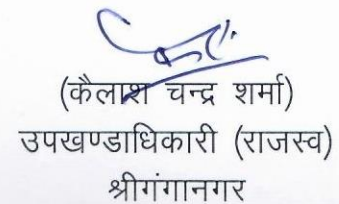 (कैलाश चन्द्र शर्मा)
उपखण्डाधिकारी (राजस्व)
श्रीगंगानगर